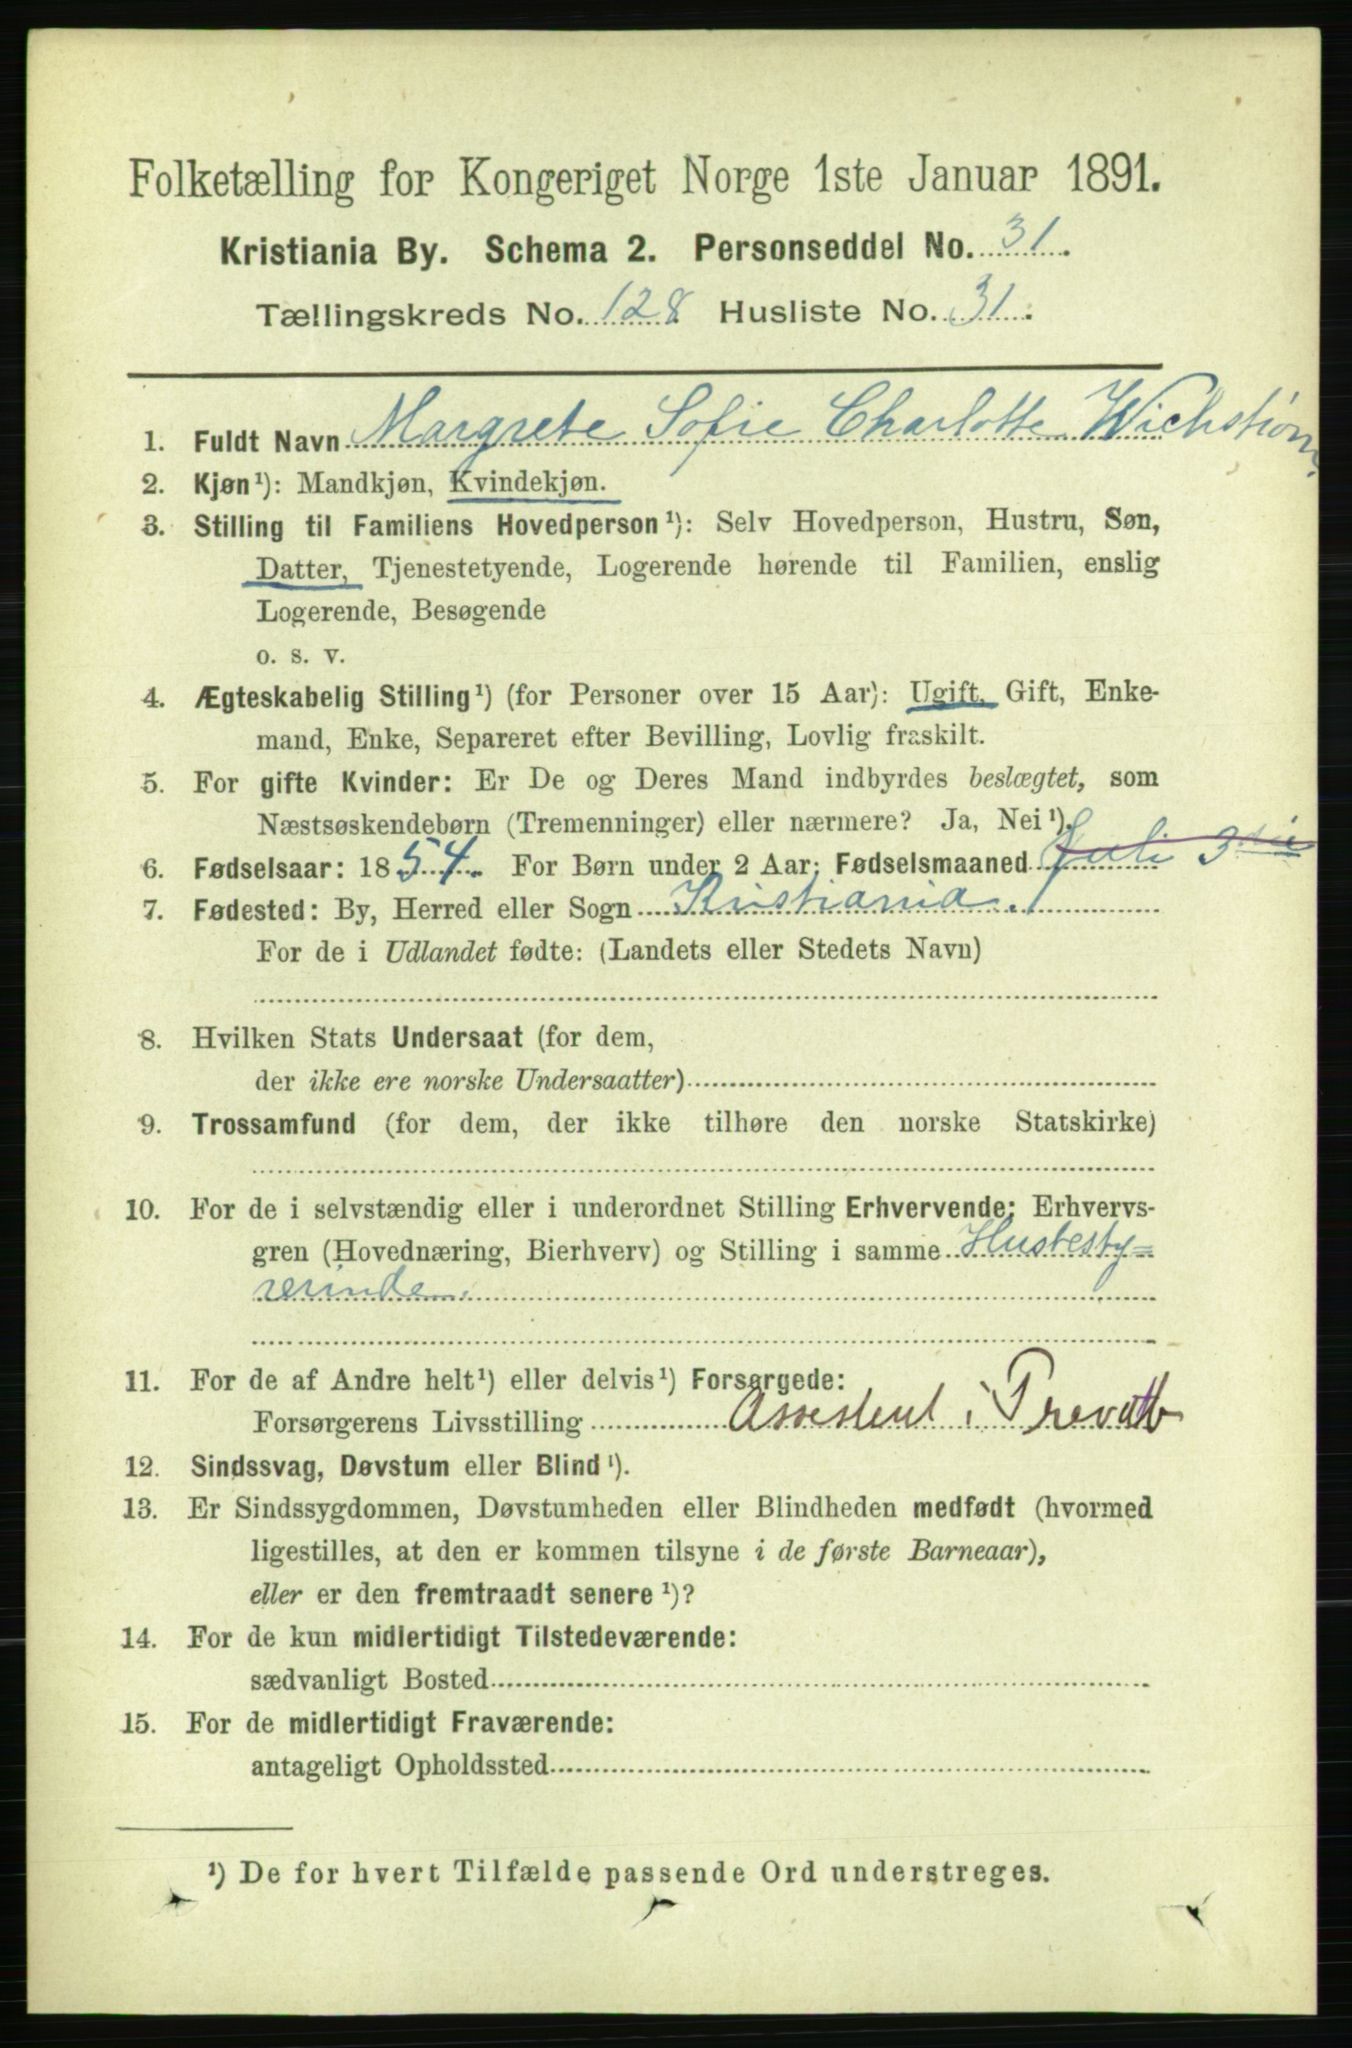 Folketælling for Kongeriget Norge 1ste Januar 1891.
Kristiania By. Schema 2. Personseddel No. 31.
Tællingskreds No. 128 Husliste No. 31.
1. Fuldt Navn Margrete Sofie Charlotte Wichstrøm.
2. Kjøn¹): Mandkjøn, Kvindekjøn.
3. Stilling til Familiens Hovedperson¹): Selv Hovedperson, Hustru, Søn,
Datter, Tjenestetyende, Logerende hørende til Familien, enslig
Logerende, Besøgende
o. s. v.
4. Ægteskabelig Stilling¹) (for Personer over 15 Aar): Ugift, Gift, Enke-
mand, Enke, Separeret efter Bevilling, Lovlig fraskilt.
5. For gifte Kvinder: Er De og Deres Mand indbyrdes beslægtet, som
Næstsøskendebørn (Tremenninger) eller nærmere? Ja, Nei¹).
6. Fødselsaar: 1854. For Børn under 2 Aar: Fødselsmaaned Juli 3die
7. Fødested: By, Herred eller Sogn Kristiania.
For de i Udlandet fødte: (Landets eller Stedets Navn)
8. Hvilken Stats Undersaat (for dem,
der ikke ere norske Undersaatter)
9. Trossamfund (for dem, der ikke tilhøre den norske Statskirke)
10. For de i selvstændig eller i underordnet Stilling Erhvervende: Erhvervs-
gren (Hovednæring, Bierhverv) og Stilling i samme Husbesty=
rerinde.
11. For de af Andre helt¹) eller delvis¹) Forsørgede:
Forsørgerens Livsstilling Assistent i
12. Sindssvag, Døvstum eller Blind¹).
13. Er Sindssygdommen, Døvstumheden eller Blindheden medfødt (hvormed
ligestilles, at den er kommen tilsyne i de første Barneaar),
eller er den fremtraadt senere¹)?
14. For de kun midlertidigt Tilstedeværende:
sædvanligt Bosted
15. For de midlertidigt Fraværende:
antageligt Opholdssted
¹) De for hvert Tilfælde passende Ord understreges.